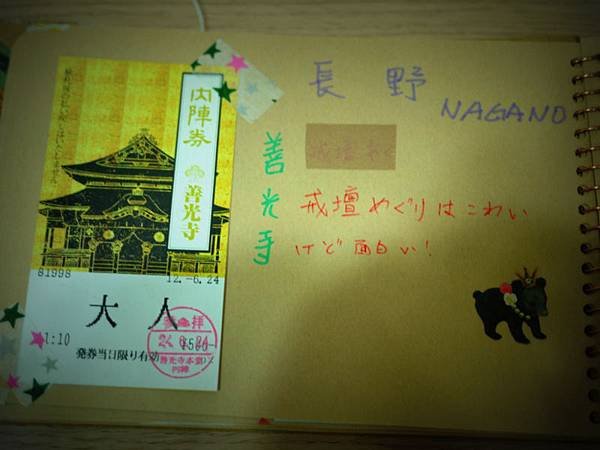 内陣券
善光寺
81998
12.-6.24
大人
1:10
¥500-
発券当日限り有効
拝
24.6.24
善光寺本堂
内陣
長野
NAGANO
善光寺
戒壇めぐりはこわい
けど面白い!